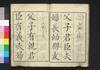 父子君臣夫
婦長幼朋友
父子有親君
臣有義夫婦